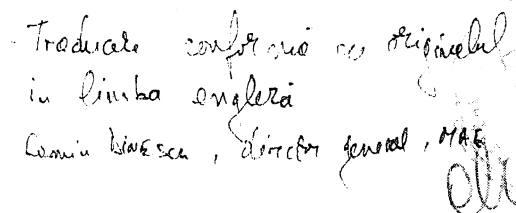 Traducere conformă cu originalul
in limba engleză
Cosmin Dinescu, director general, MAE